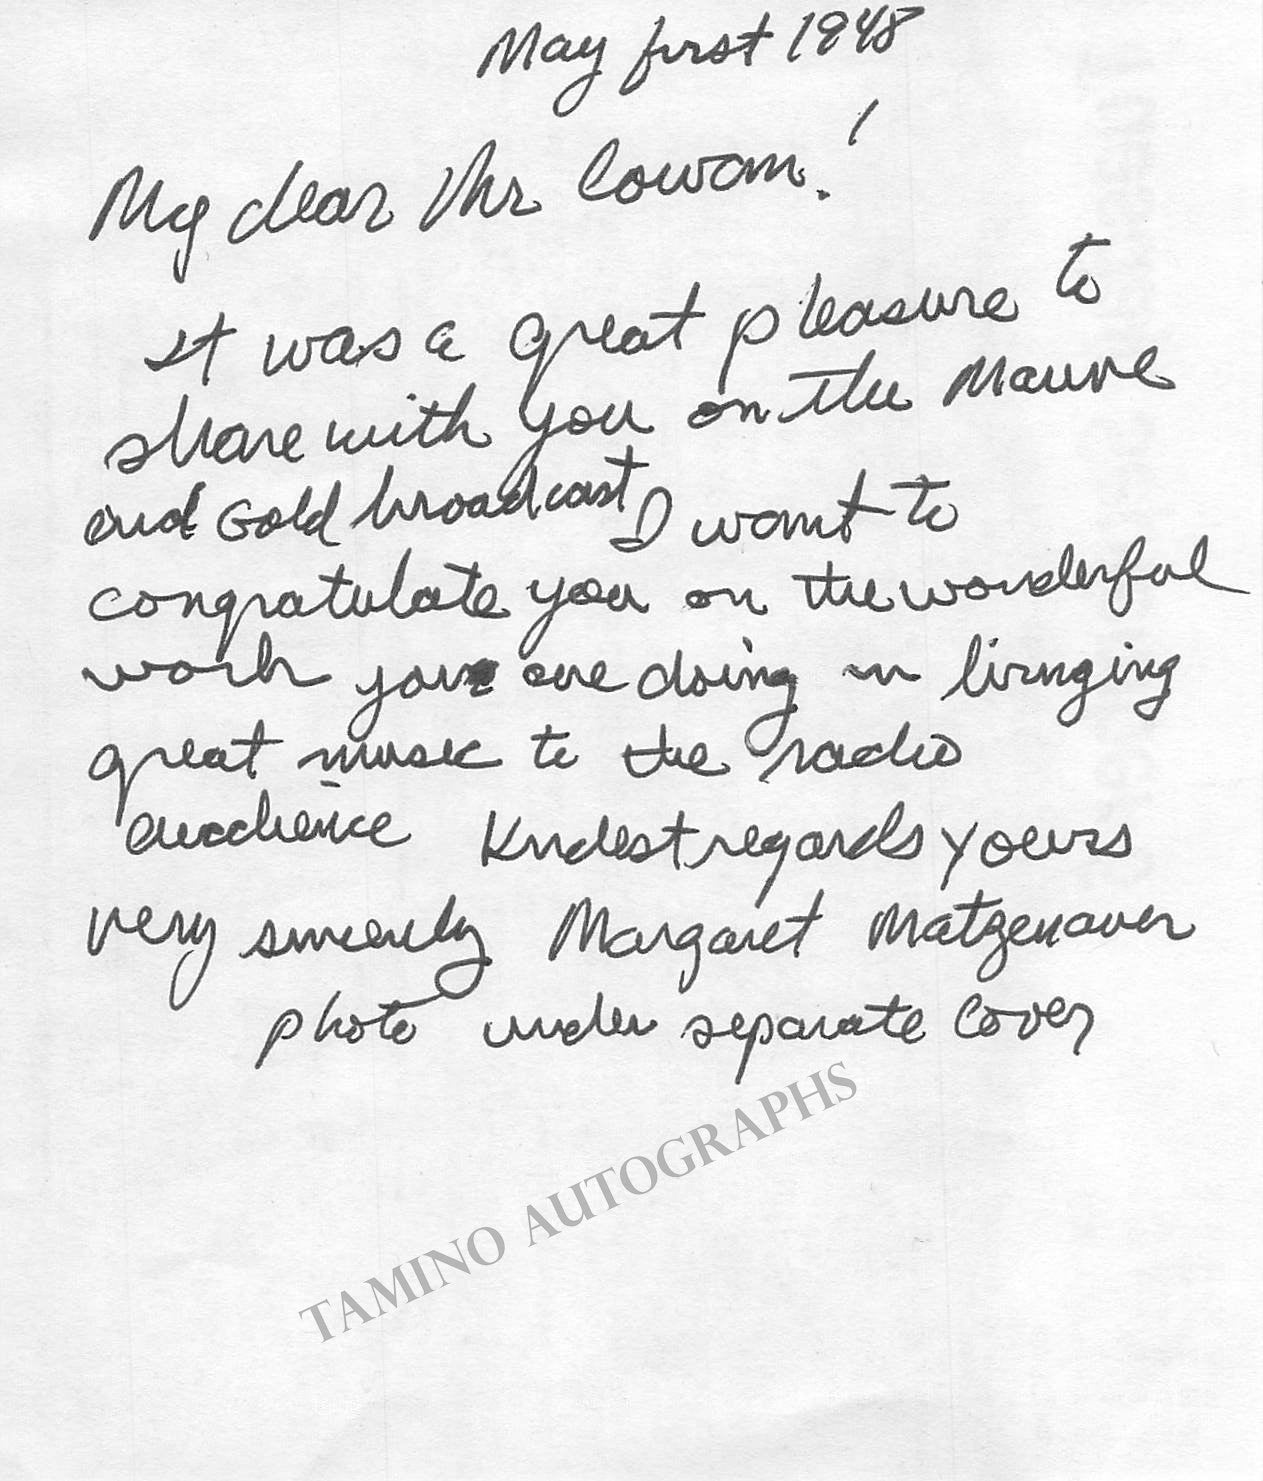 May first 1948
My dear Mr Cowan!
It was a great pleasure to
share with you on the Mauve
and Gold broadcast I want to
congratulate you on the wonderful
work you are doing in bringing
great music to the radio
audience Kindest regards yours
very sincerely Margaret Matzenauer
photo under separate cover
TAMINO AUTOGRAPHS